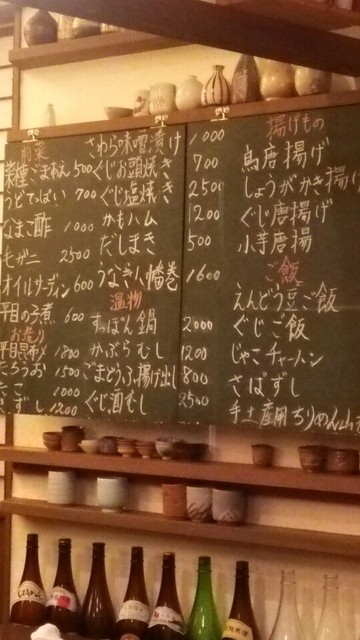 前菜
ごまあえ 500
うどてっぱい 700
なまこ酢 1000
モザニ 2500
オイルサーディン 600
平目の子煮 600
お造り
平目昆布〆 1800
1500
たこ 1000
きずし 1200
さわら味噌漬け 1000
ぐじお頭焼き 700
ぐじ塩焼き 2500
かもハム 1200
だしまき 500
うなぎ八幡巻 1600
温物
すっぽん鍋 2000
かぶらむし 1200
ごまどうふ揚げ出し 800
ぐじ酒むし 2500
揚げもの
鳥唐揚げ
しょうがかき揚げ
ぐじ唐揚げ
小芋唐揚
ご飯
えんどう豆ご飯
ぐじご飯
じゃこチャーハン
さばずし
手土産用ちりめん山